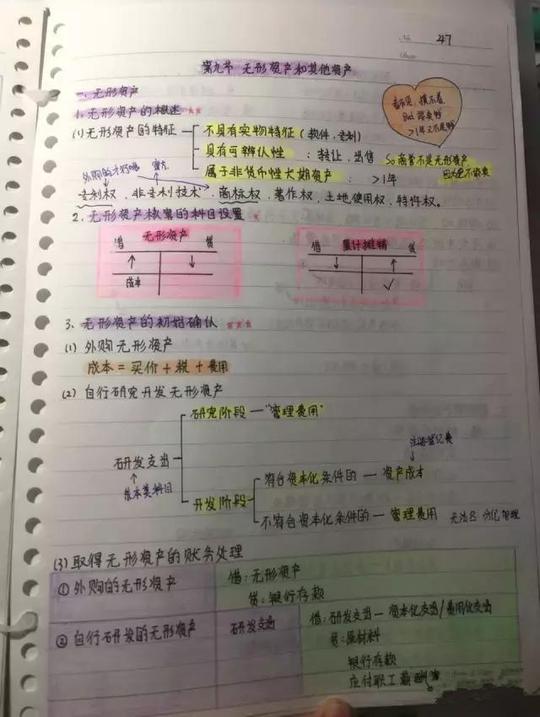 No. 47
第九节 无形资产和其他资产
一、无形资产
1、无形资产的概述 ★★
(1) 无形资产的特征
不具有实物特征（软件，专利）
具有可辨认性：转让，出售 So商誉不是无形资产
属于非货币性长期资产：>1年
看不见，摸不着
But
>1年又不是够
专利权、非专利技术、商标权、著作权、土地使用权、特许权。
2、无形资产核算的科目设置 ★
借 无形资产 贷
↑ ↓
成本
借 累计摊销 贷
↓ ↑
✓
3、无形资产的初始确认 ★★★
(1) 外购无形资产
成本 = 买价 + 税 + 费用
(2) 自行研究开发无形资产
研究阶段 — "管理费用"
研发支出
成本类科目
注册登记费
开发阶段
符合资本化条件的 — 资产成本
不符合资本化条件的 — 管理费用 无法区分 管理
(3) 取得无形资产的账务处理
① 外购的无形资产
借：无形资产
贷：银行存款
② 自行研发的无形资产
研发支出
借：研发支出 — 资本化支出/费用化支出
贷：原材料
银行存款
应付职工薪酬